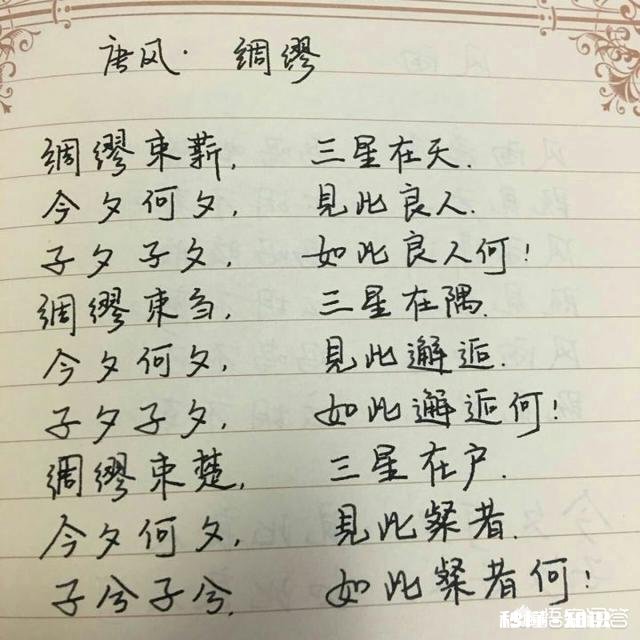 唐风· 綢繆
綢繆束薪, 三星在天.
今夕何夕, 見此良人.
子夕子夕, 如此良人何!
綢繆束刍, 三星在隅.
今夕何夕, 見此邂逅.
子夕子夕, 如此邂逅何!
綢繆束楚, 三星在户.
今夕何夕, 見此粲者.
子兮子兮, 如此粲者何!